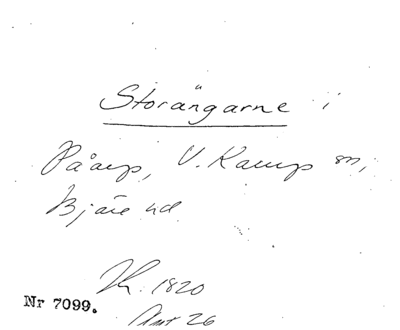 Storängarne i
Påarp, V. Karup sn,
Bjäre hd
1820
Nr 7099.
26